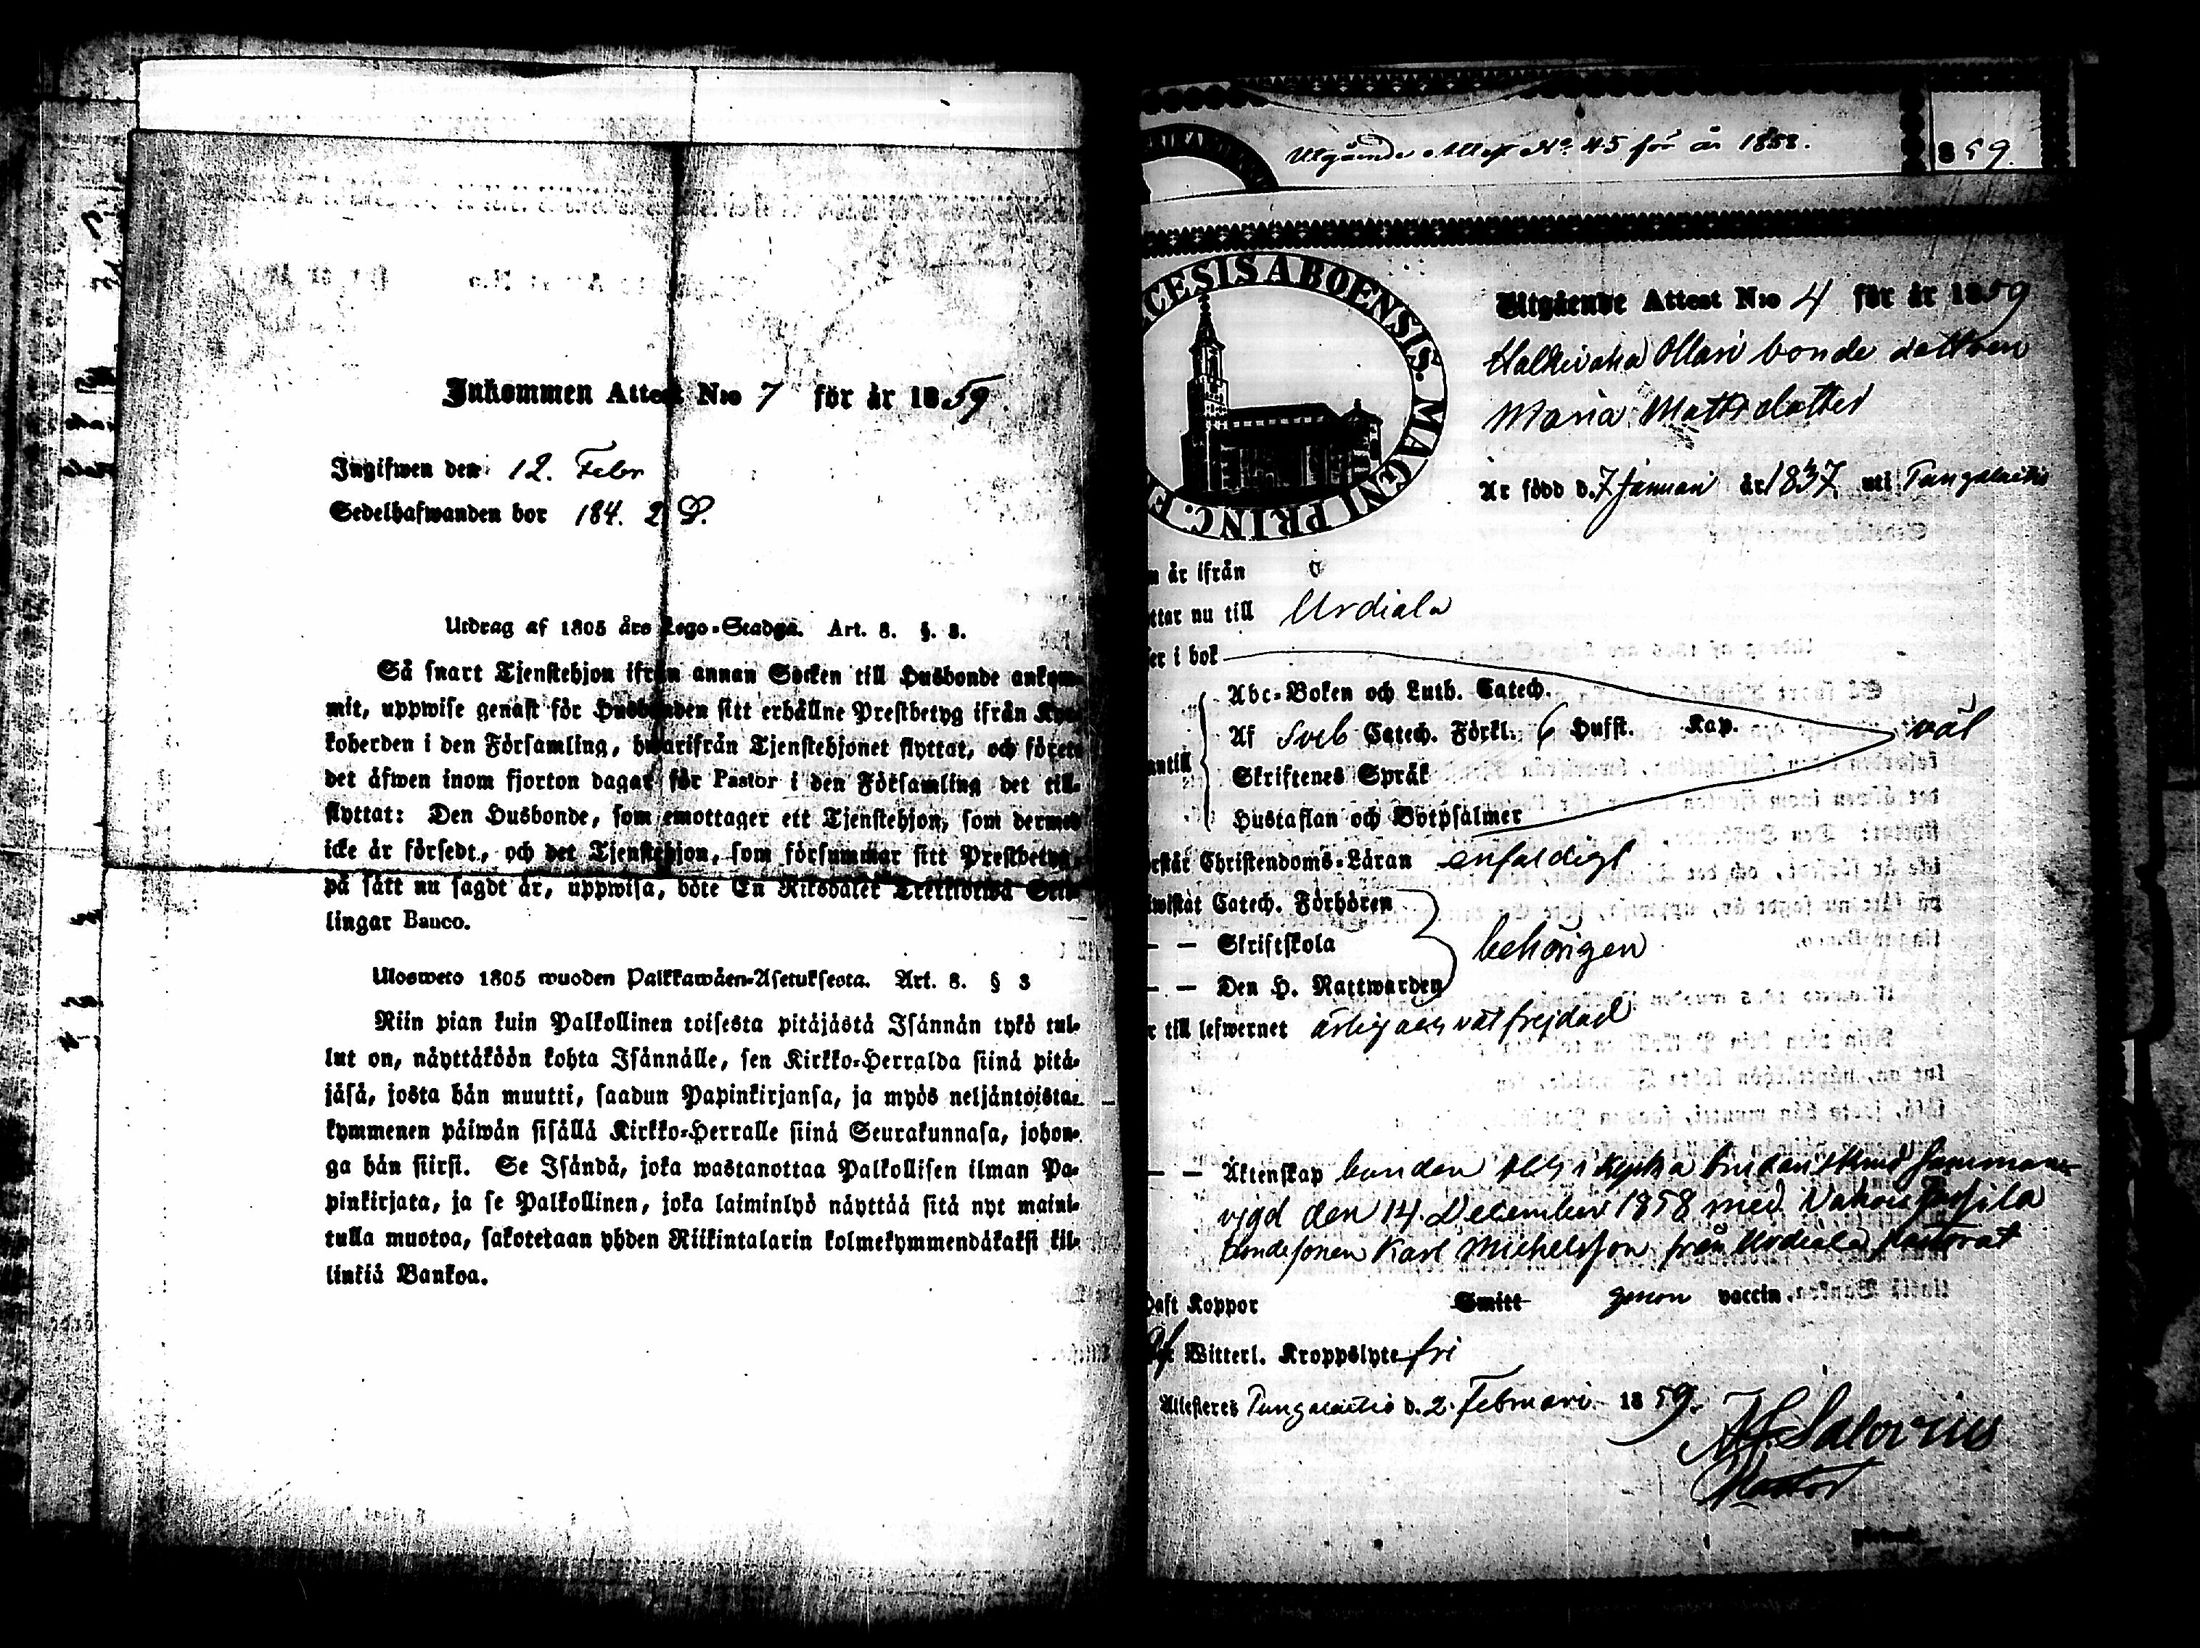 Inkommen Attest N:o 7 för år 1859
Ingifwen den 12. Febr
Sedelhafwanden bor 184. 2 D.
Utdrag af 1805 års Lego-Stadga. Art. 8. §. 3.
Så snart Tjenstehjon ifrån annan Socken till Husbonde ankom-
mit, uppwise genast för Husbonden sitt erhållne Prestbetyg ifrån Kyr-
koherden i den Församling, hwarifrån Tjenstehjonet flyttat, och förete
det äfwen inom fjorton dagar för Pastor i den Församling det till-
flyttat: Den Husbonde, som emottager ett Tjenstehjon, som dermed
icke är försedt, och det Tjenstehjon, som försummar sitt Prestbetyg,
på sätt nu sagdt är, uppwisa, böte En Riksdaler Trettiotwå Skil-
lingar Banco.
Ulosweto 1805 wuoden Palkkawäen-Asetuksesta. Art. 8. § 3
Niin pian kuin Palkollinen toisesta pitäjästä Isännän tykö tul-
lut on, näyttäköön kohta Isännälle, sen Kirkko-Herralda siinä pitä-
jäsä, josta hän muutti, saadun Papinkirjansa, ja myös neljäntoista-
kymmenen päiwän sisällä Kirkko-Herralle siinä Seurakunnasa, johon-
ga hän siirsi. Se Isändä, joka wastanottaa Palkollisen ilman Pa-
pinkirjata, ja se Palkollinen, joka laiminlyö näyttää sitä nyt maini-
tulla muotoa, sakotetaan yhden Riikintalarin kolmekymmendäkaksi kil-
linkiä Bankoa.
Utgående Attest No. 45 för år 1858.
859.
CESIS ABOENSIS. MAGNI PRINC. F
Utgående Attest N:o 4 för år 1859
Halkivaha Ollari bonde dottren
Maria Mattsdotter
Är född d. 7 Januari år 1837 uti Pungalaitio
n är ifrån
ttar nu till Urdiala
er i bok
Abc-Boken och Luth. Catech.
Af Sveb Catech. Förkl. 6 Hufst. Kap. väl
antill Skriftenes Språk
Hustaflan och Botpsalmer
rstår Christendoms-Läran enfaldigt
iwistat Catech. Förhören
— — Skriftskola behörigen
— — Den H. Nattwarden
r till lefwernet ärlig och väl frejdad
— — Äktenskap bonden
vigd den 14 December 1858 med
bondesonen Karl Michelsson från Urdiala Pastorat
Haft Koppor Smitt genom vaccin.
Af Witterl. Kroppslyte fri
Attesteres Pungalaitio d. 2. Februari 1859.
Salovius
Pastor